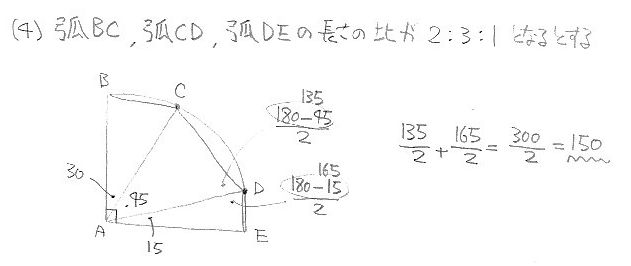 (4) 弧BC, 弧CD, 弧DEの長さの比が 2:3:1 となるとする
B
C
135
180-45
2
135/2 + 165/2 = 300/2 = 150
30
45
165
180-15
2
D
A
15
E